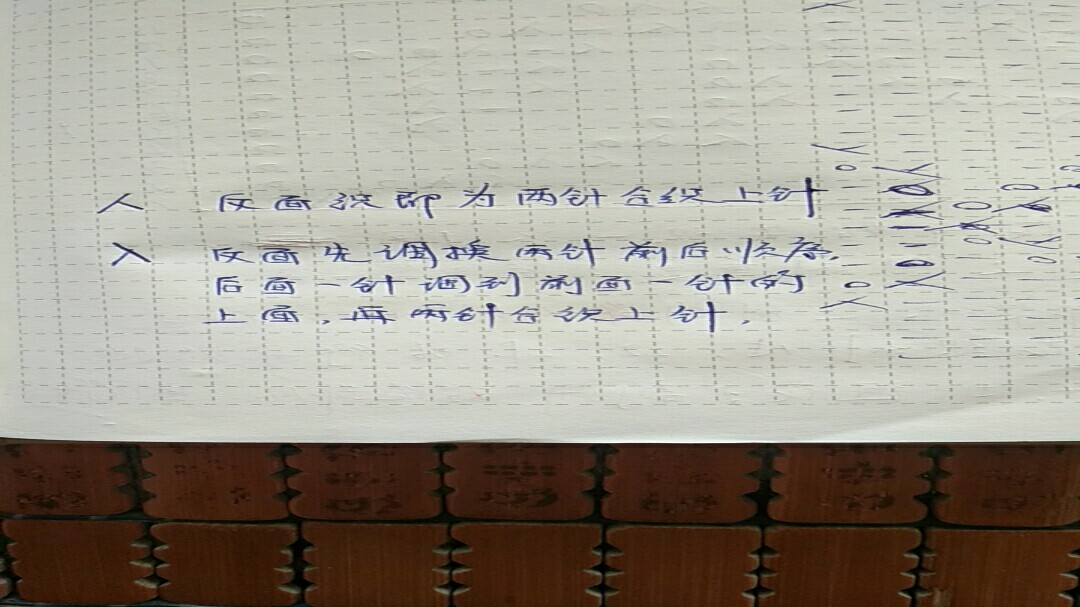 人 反面织即为两针合织上针
入 反面先调换两针前后顺序,
后面一针调到前面一针的
上面,再两针合织上针.